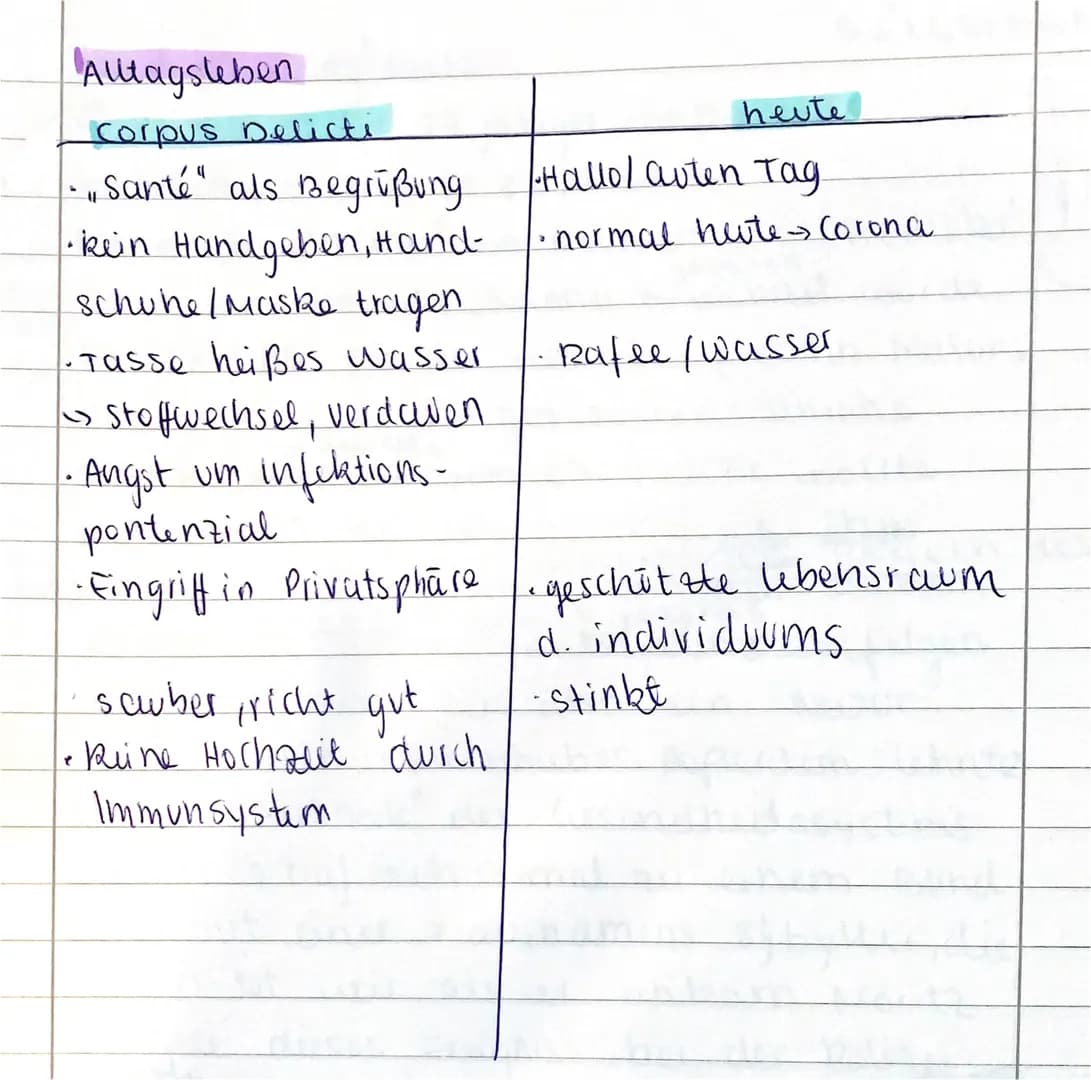 Alltagsleben
Corpus Delicti
heute
· „Santé“ als Begrüßung
· Hallo/Guten Tag
· kein Handgeben, Hand-
· normal heute → Corona
schuhe/Maske tragen
· Tasse heißes Wasser
· Kafee/Wasser
↳ Stoffwechsel, verdauen
· Angst um infektions-
pontenzial
· Eingriff in Privatsphäre
· geschützte lebensraum
d. individuums
sauber, richt gut
· stinkt
· keine Hochzeit durch
Immunsystem